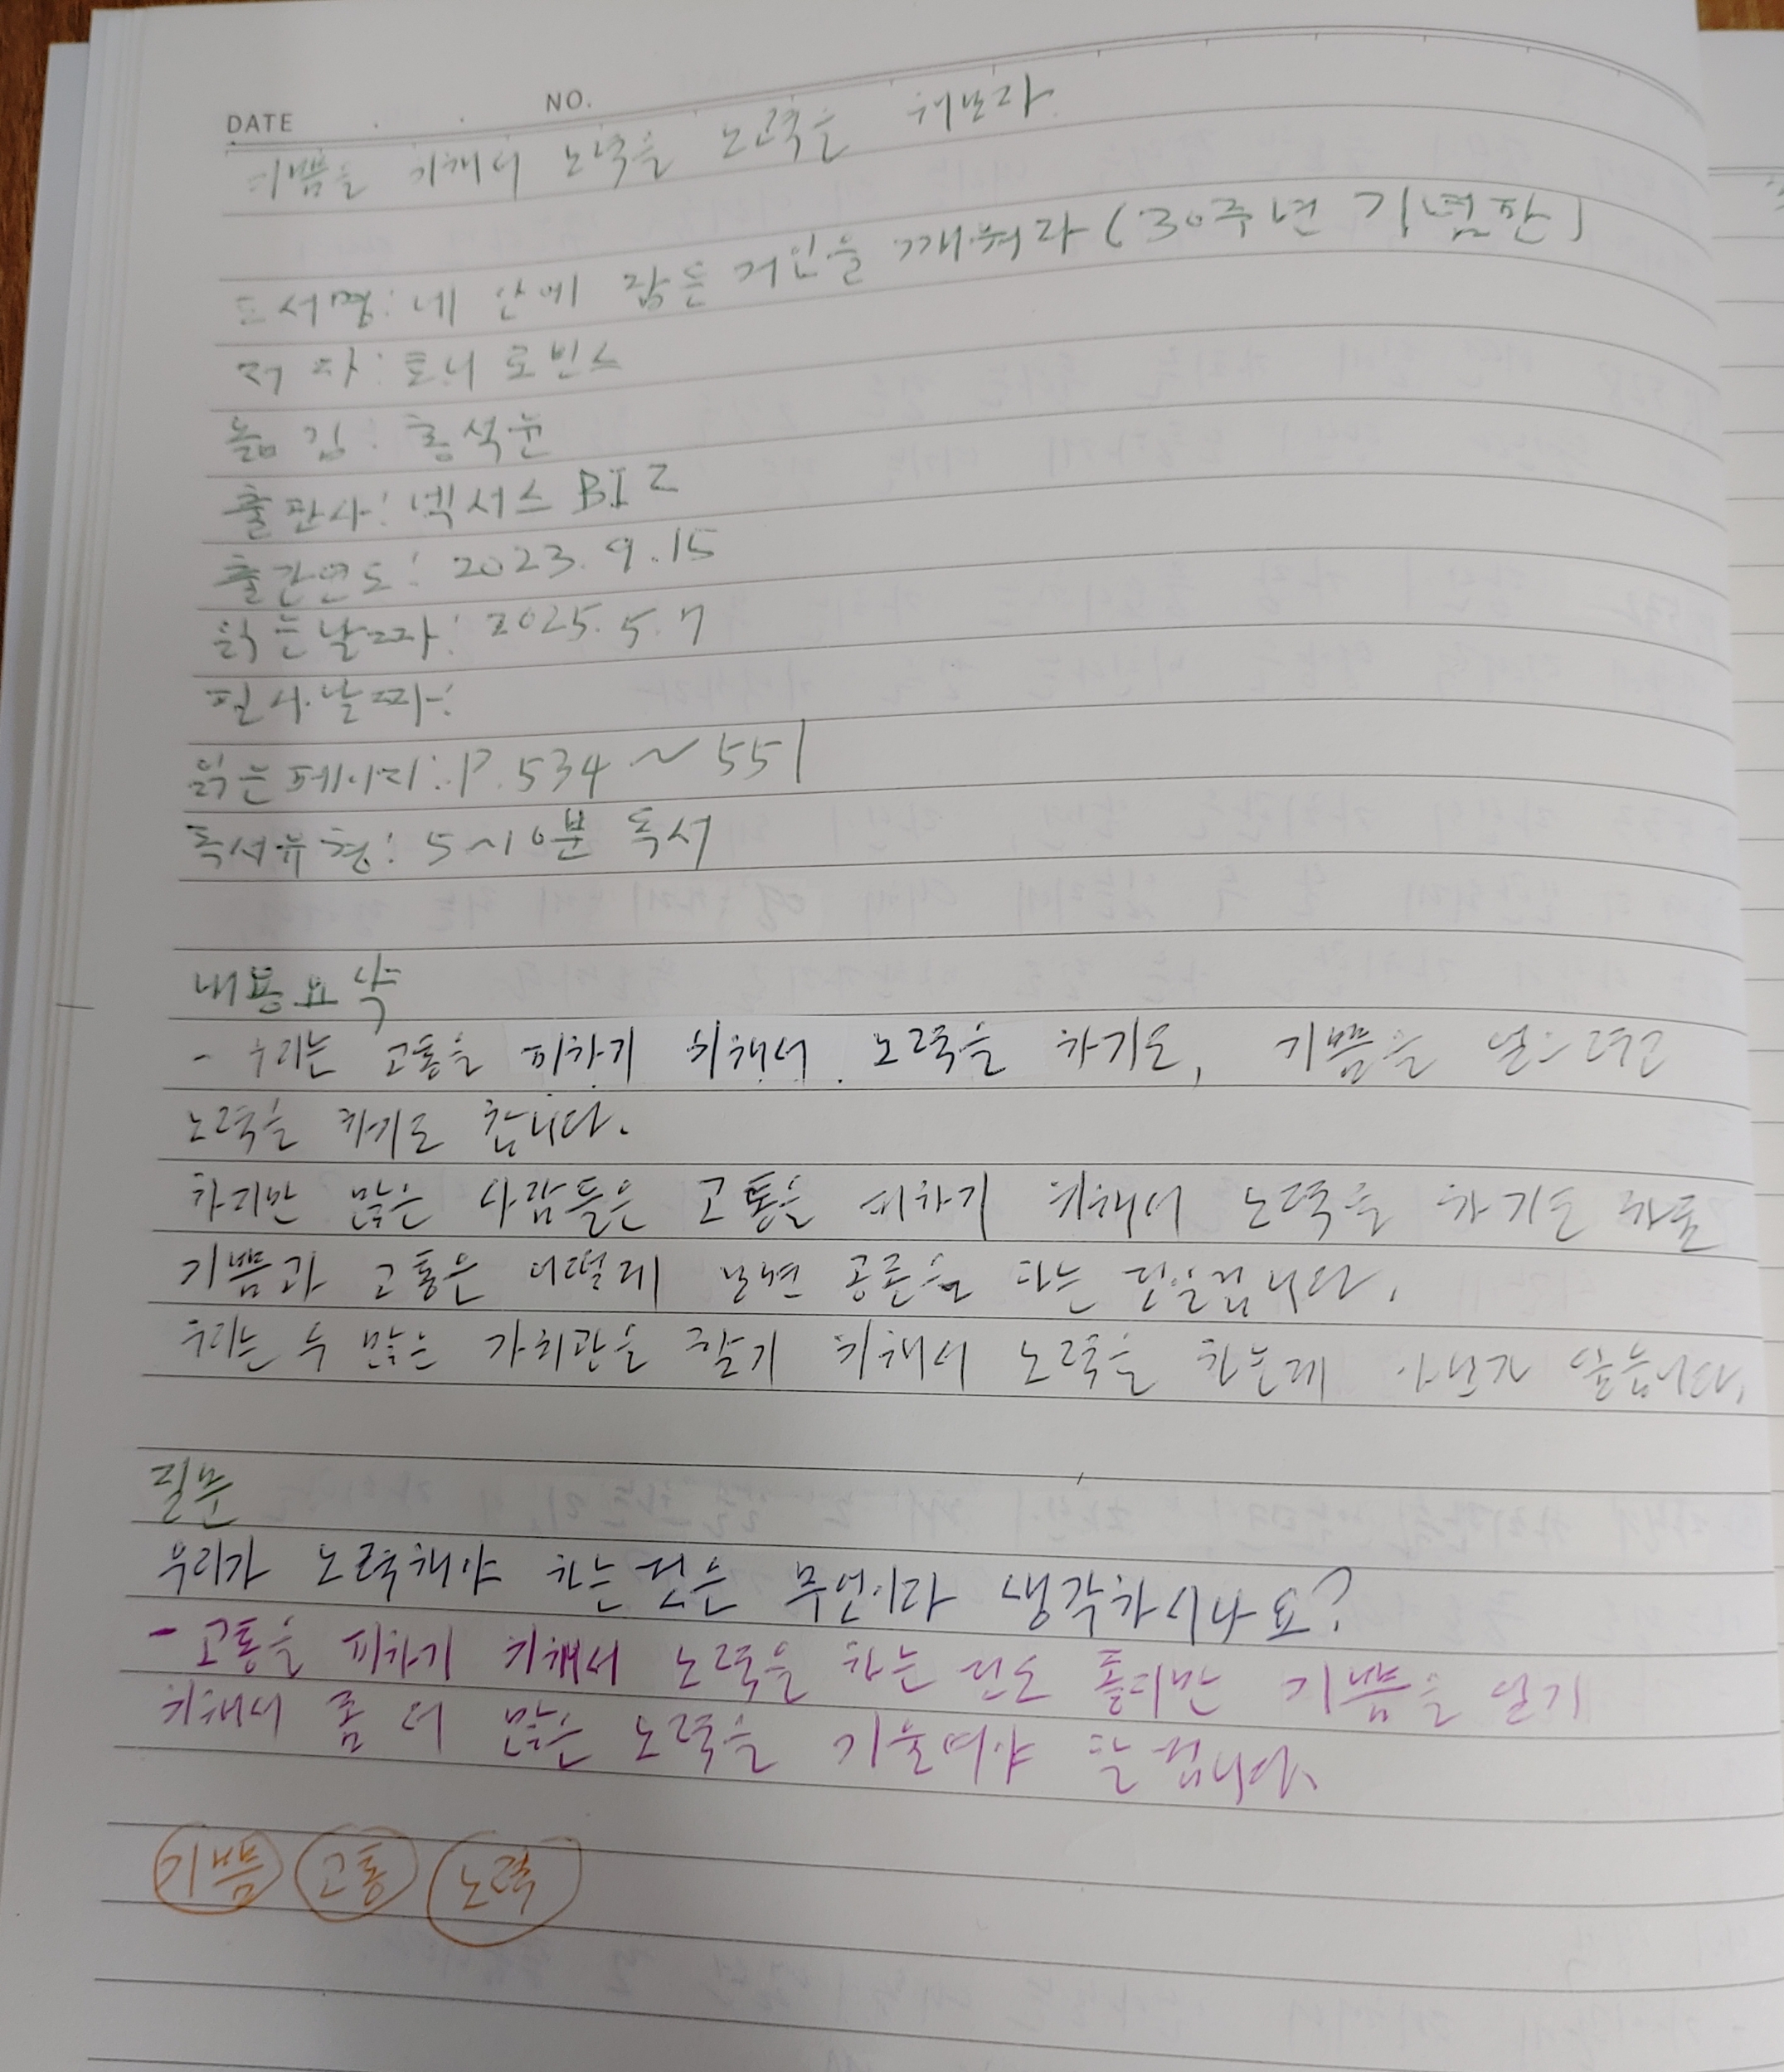 DATE . . NO.
기쁨을 위해서 노력을 노력을 해보라.
도서명: 네 안에 잠든 거인을 깨워라 (30주년 기념판)
저 자: 토니 로빈스
옮 김: 홍석윤
출판사: 넥서스 BIZ
출간연도: 2023. 9. 15
읽은날짜: 2025. 5. 7
필사날짜:
읽은페이지: P. 534 ~ 551
독서유형: 5~10분 독서
내용요약
- 우리는 고통을 피하기 위해서 노력을 하기도, 기쁨을 얻으려고
노력을 하기도 합니다.
하지만 많은 사람들은 고통을 피하기 위해서 노력을 하기도 하죠
기쁨과 고통은 어떻게 보면 공존을 하는 것일겁니다.
우리는 두 많은 가치관을 위해서 노력을 하는게 아닌가 싶습니다.
질문
우리가 노력해야 하는 것은 무엇이라 생각하시나요?
- 고통을 피하기 위해서 노력을 하는 것도 좋지만 기쁨을 얻기
위해서 좀 더 많은 노력을 기울여야 할 겁니다.
기쁨 고통 노력